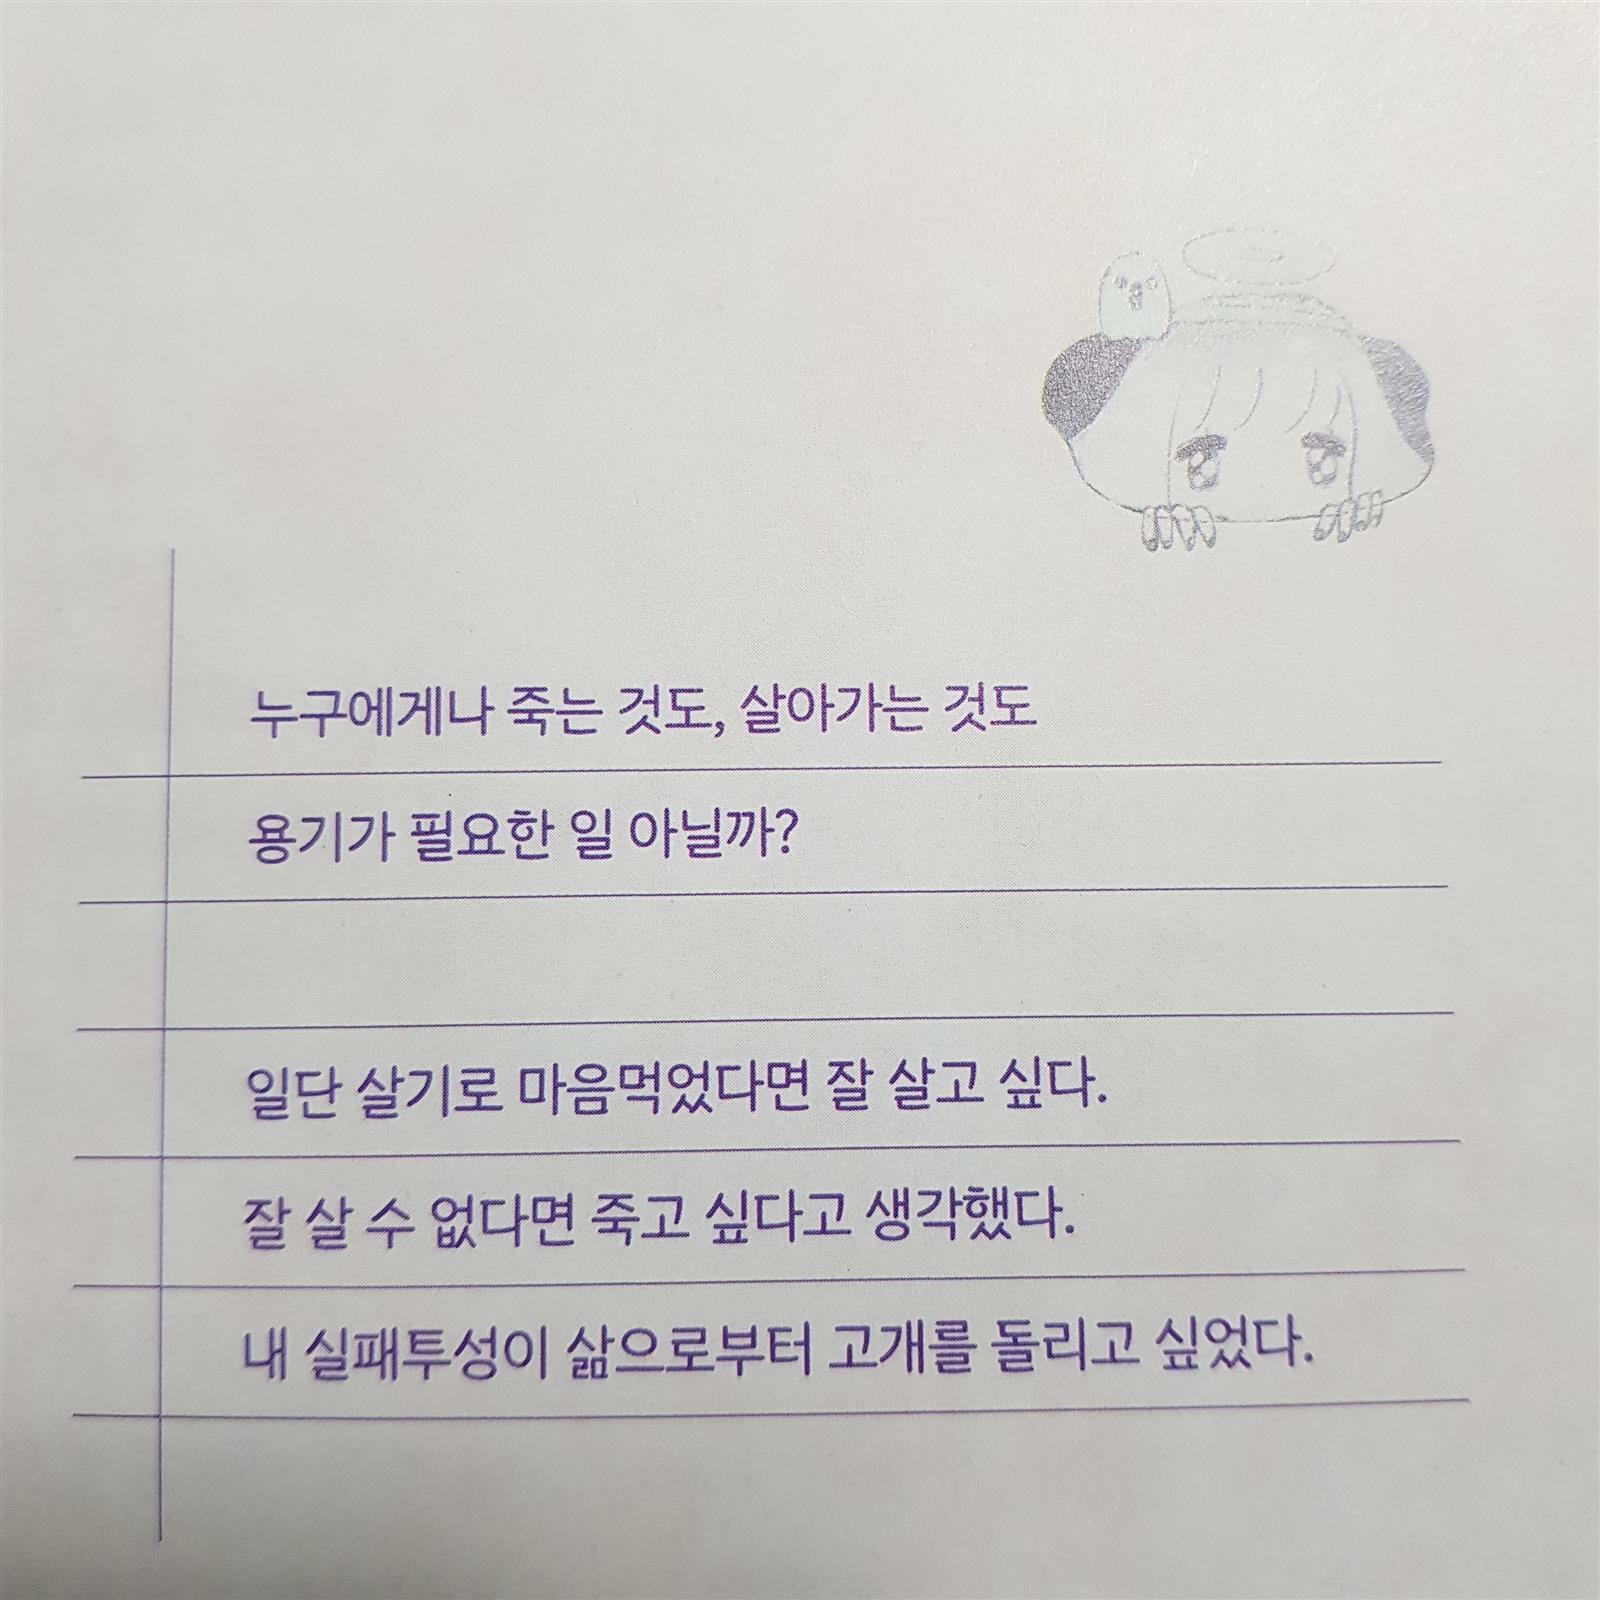 누구에게나 죽는 것도, 살아가는 것도
용기가 필요한 일 아닐까?
일단 살기로 마음먹었다면 잘 살고 싶다.
잘 살 수 없다면 죽고 싶다고 생각했다.
내 실패투성이 삶으로부터 고개를 돌리고 싶었다.